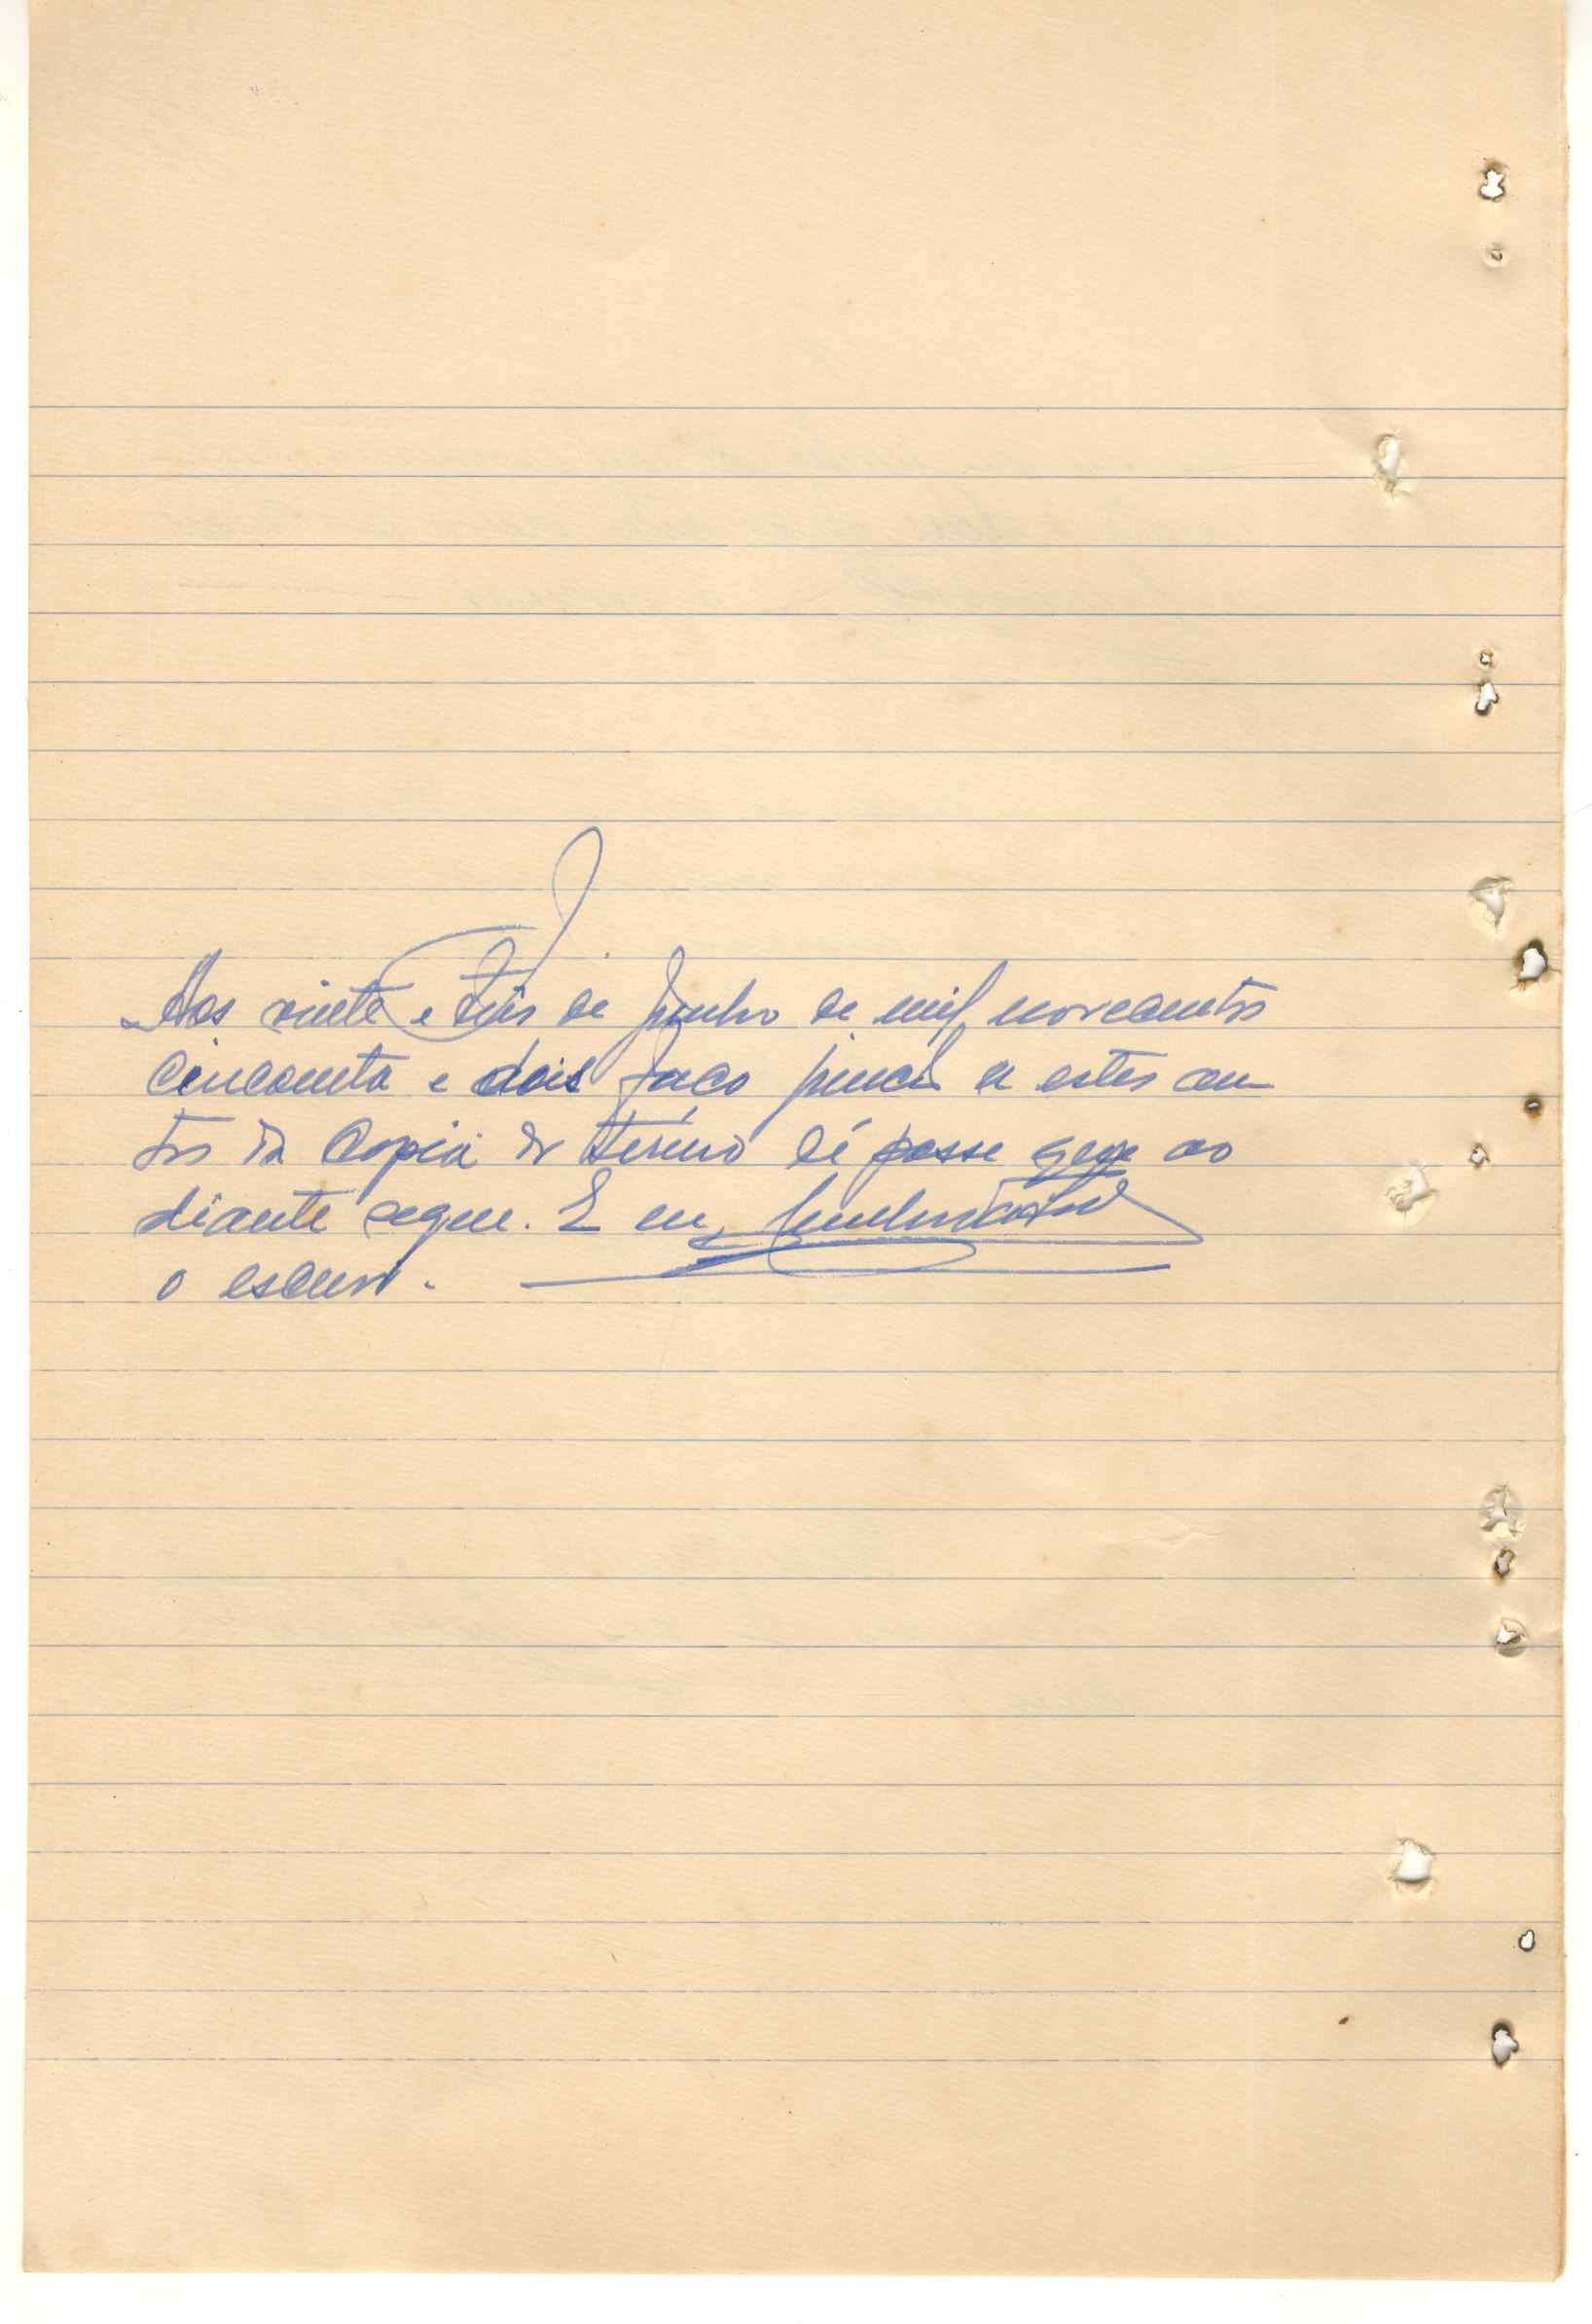 J
Aos vinte e tres de Junho de mil novecentos
cincoenta e dois faço junção a estes au
tos da Copia do termo de posse que ao
diante segue. E eu,
o escrevi.